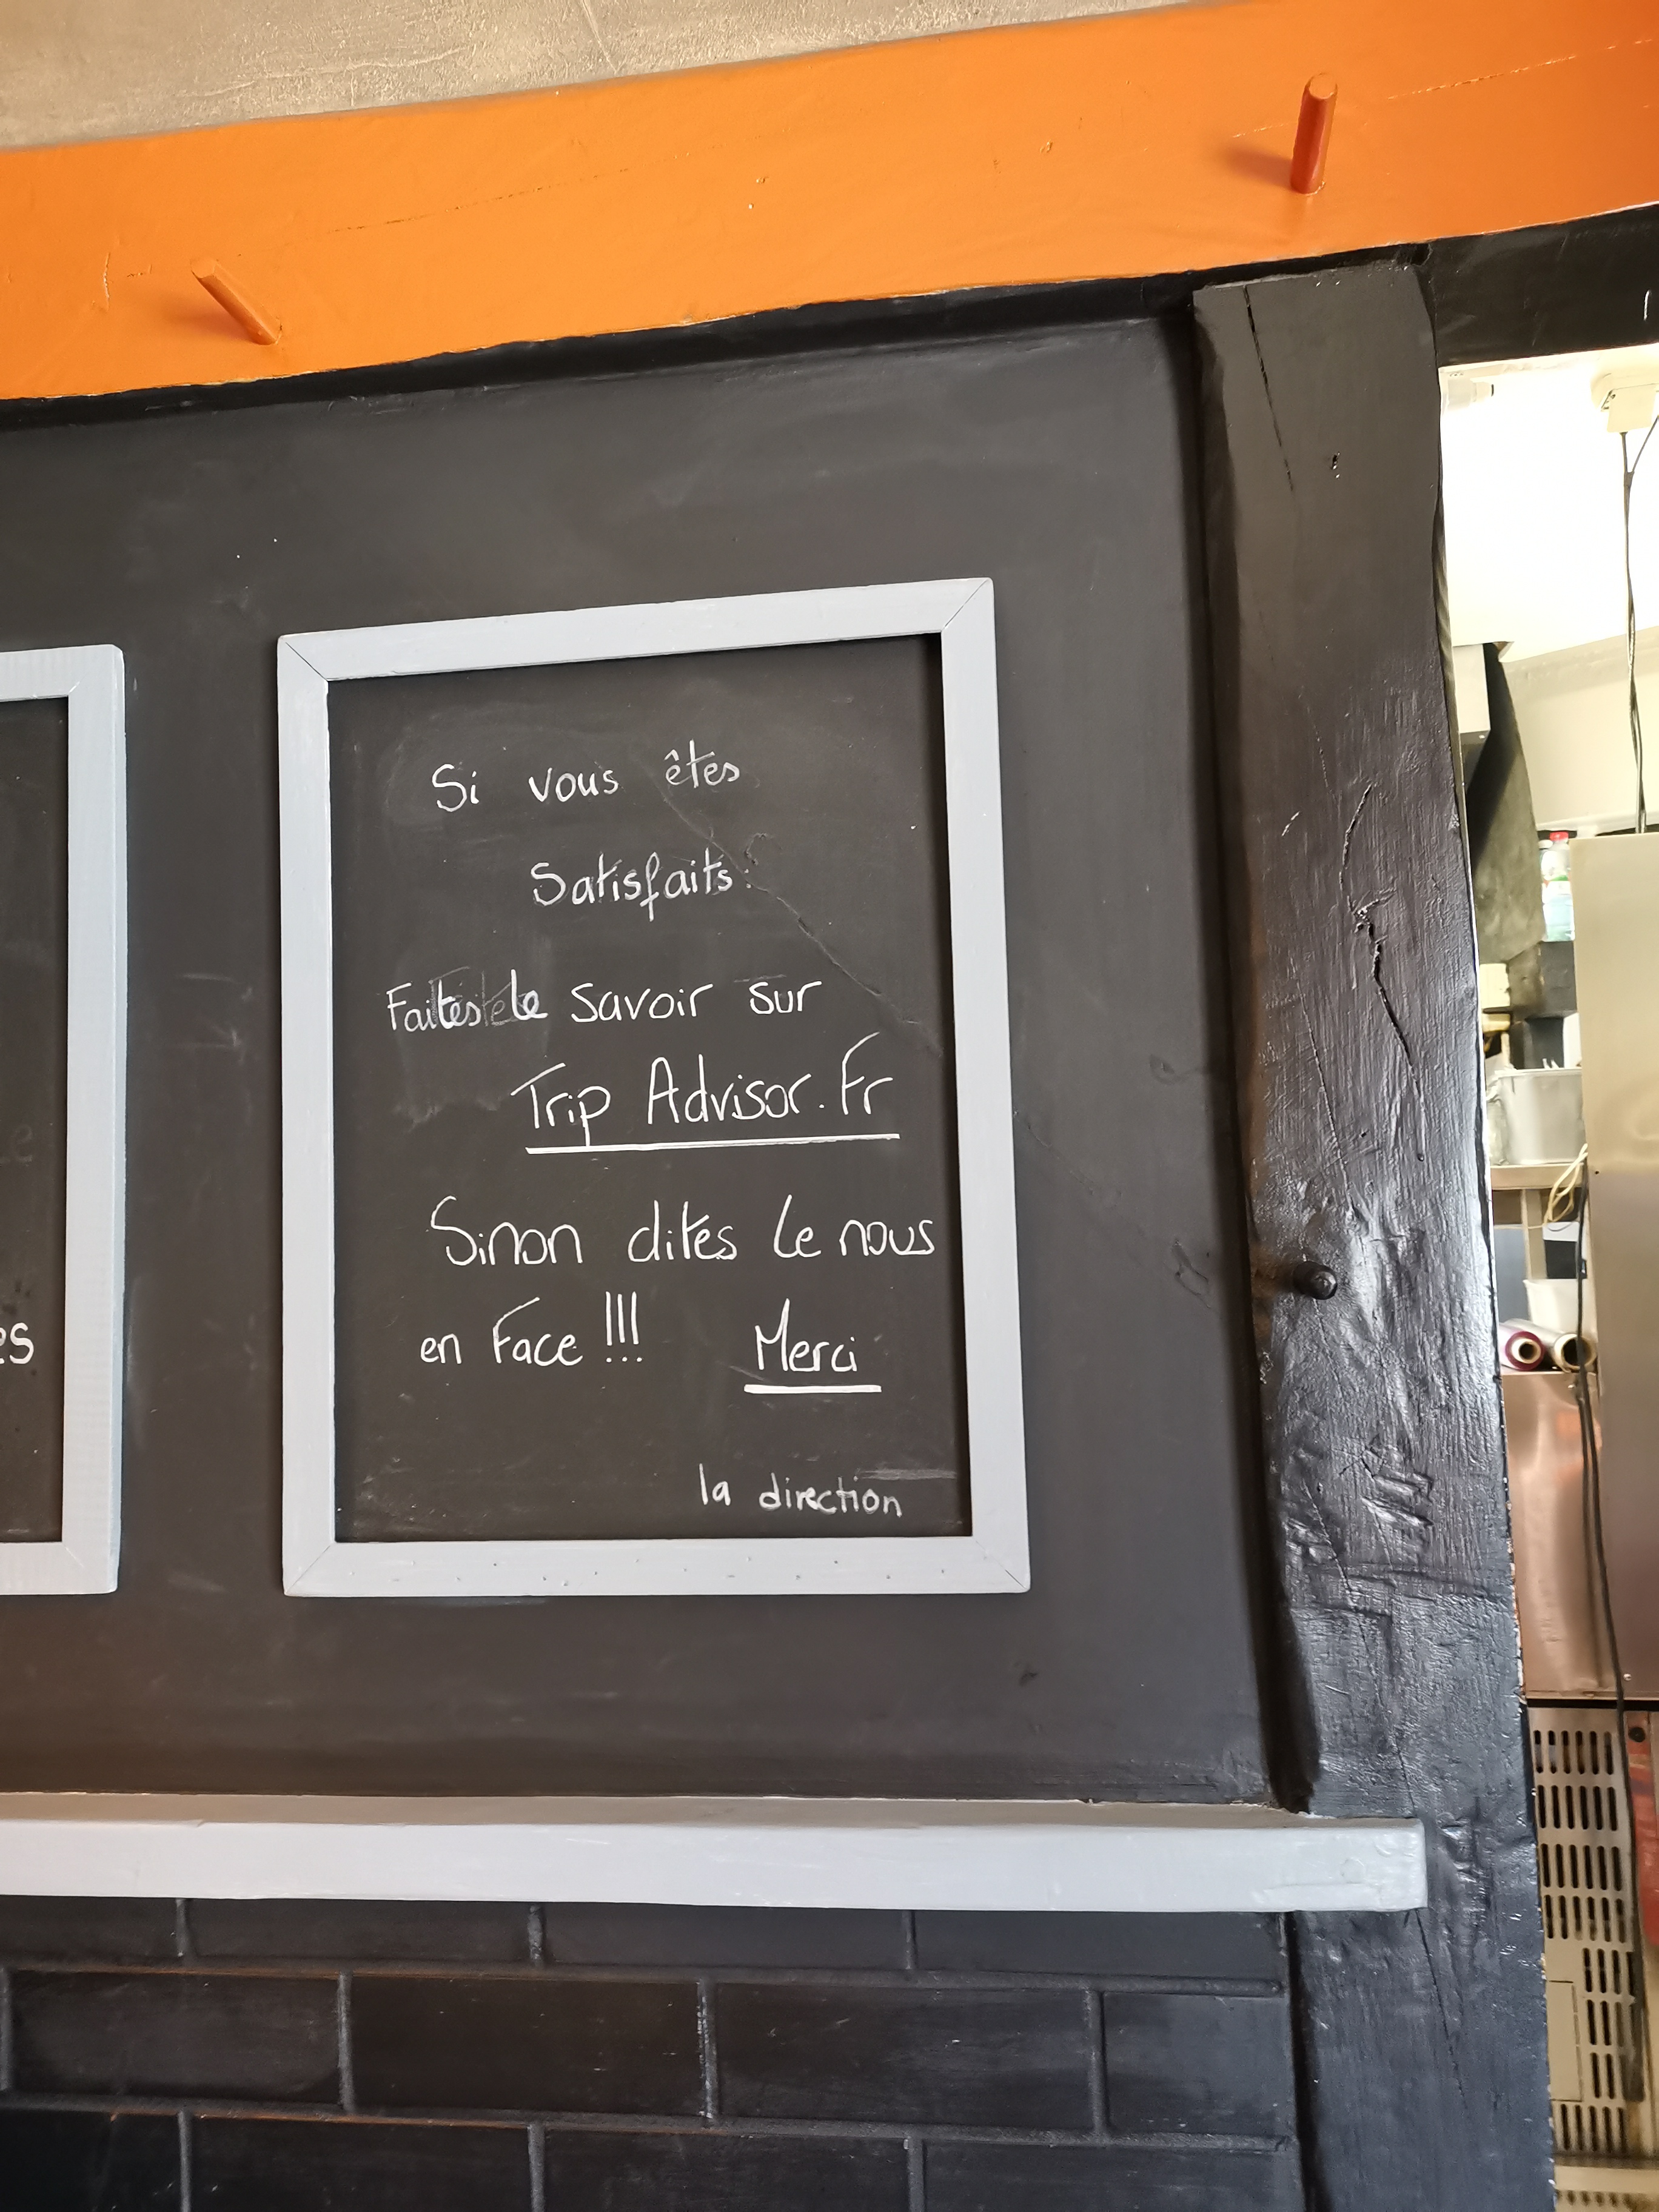 Si vous êtes
Satisfaits:
Faites le savoir sur
Trip Advisor.Fr
Sinon dites le nous
en Face !!! Merci
la direction
es